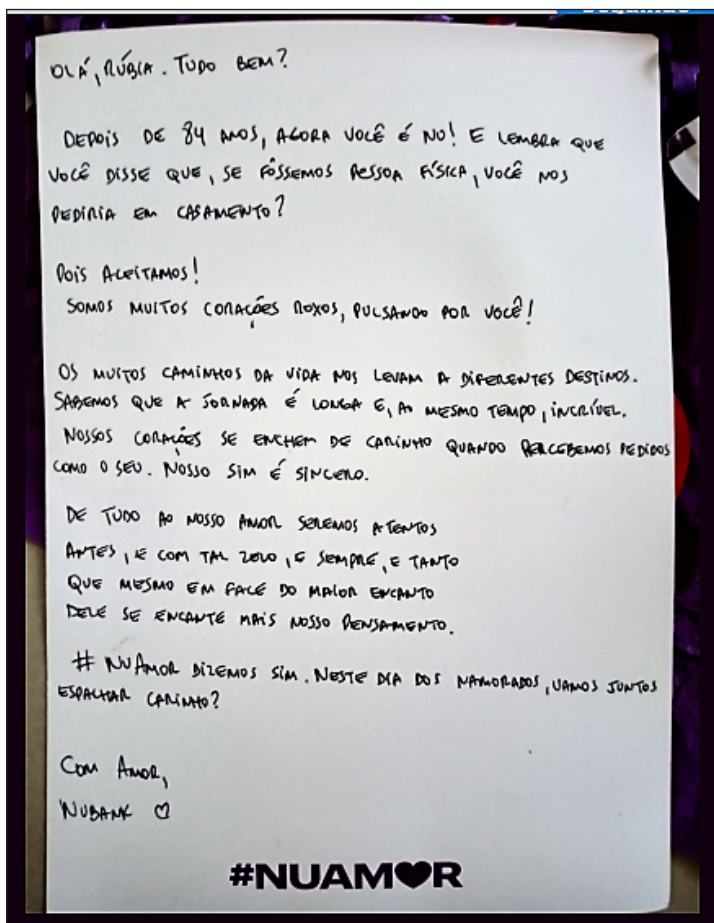 OLÁ, RÚBIA. TUDO BEM?
DEPOIS DE 84 ANOS, AGORA VOCÊ É NO! E LEMBRA QUE
VOCÊ DISSE QUE, SE FÔSSEMOS PESSOA FÍSICA, VOCÊ NOS
PEDIRIA EM CASAMENTO?
POIS ACEITAMOS!
SOMOS MUITOS CORAÇÕES ROXOS, PULSANDO POR VOCÊ!
OS MUITOS CAMINHOS DA VIDA NOS LEVAM A DIFERENTES DESTINOS.
SABEMOS QUE A JORNADA É LONGA E, AO MESMO TEMPO, INCRÍVEL.
NOSSOS CORAÇÕES SE ENCHEM DE CARINHO QUANDO RECEBEMOS PEDIDOS
COMO O SEU. NOSSO SIM É SINCERO.
DE TUDO AO NOSSO AMOR SEREMOS ATENTOS
ANTES, E COM TAL ZELO, E SEMPRE, E TANTO
QUE MESMO EM FACE DO MAIOR ENCANTO
DELE SE ENCANTE MAIS NOSSO PENSAMENTO.
# NUAMOR DIZEMOS SIM. NESTE DIA DOS NAMORADOS, VAMOS JUNTOS
ESPALHAR CARINHO?
COM AMOR,
NUBANK ♡
#NUAM♥R